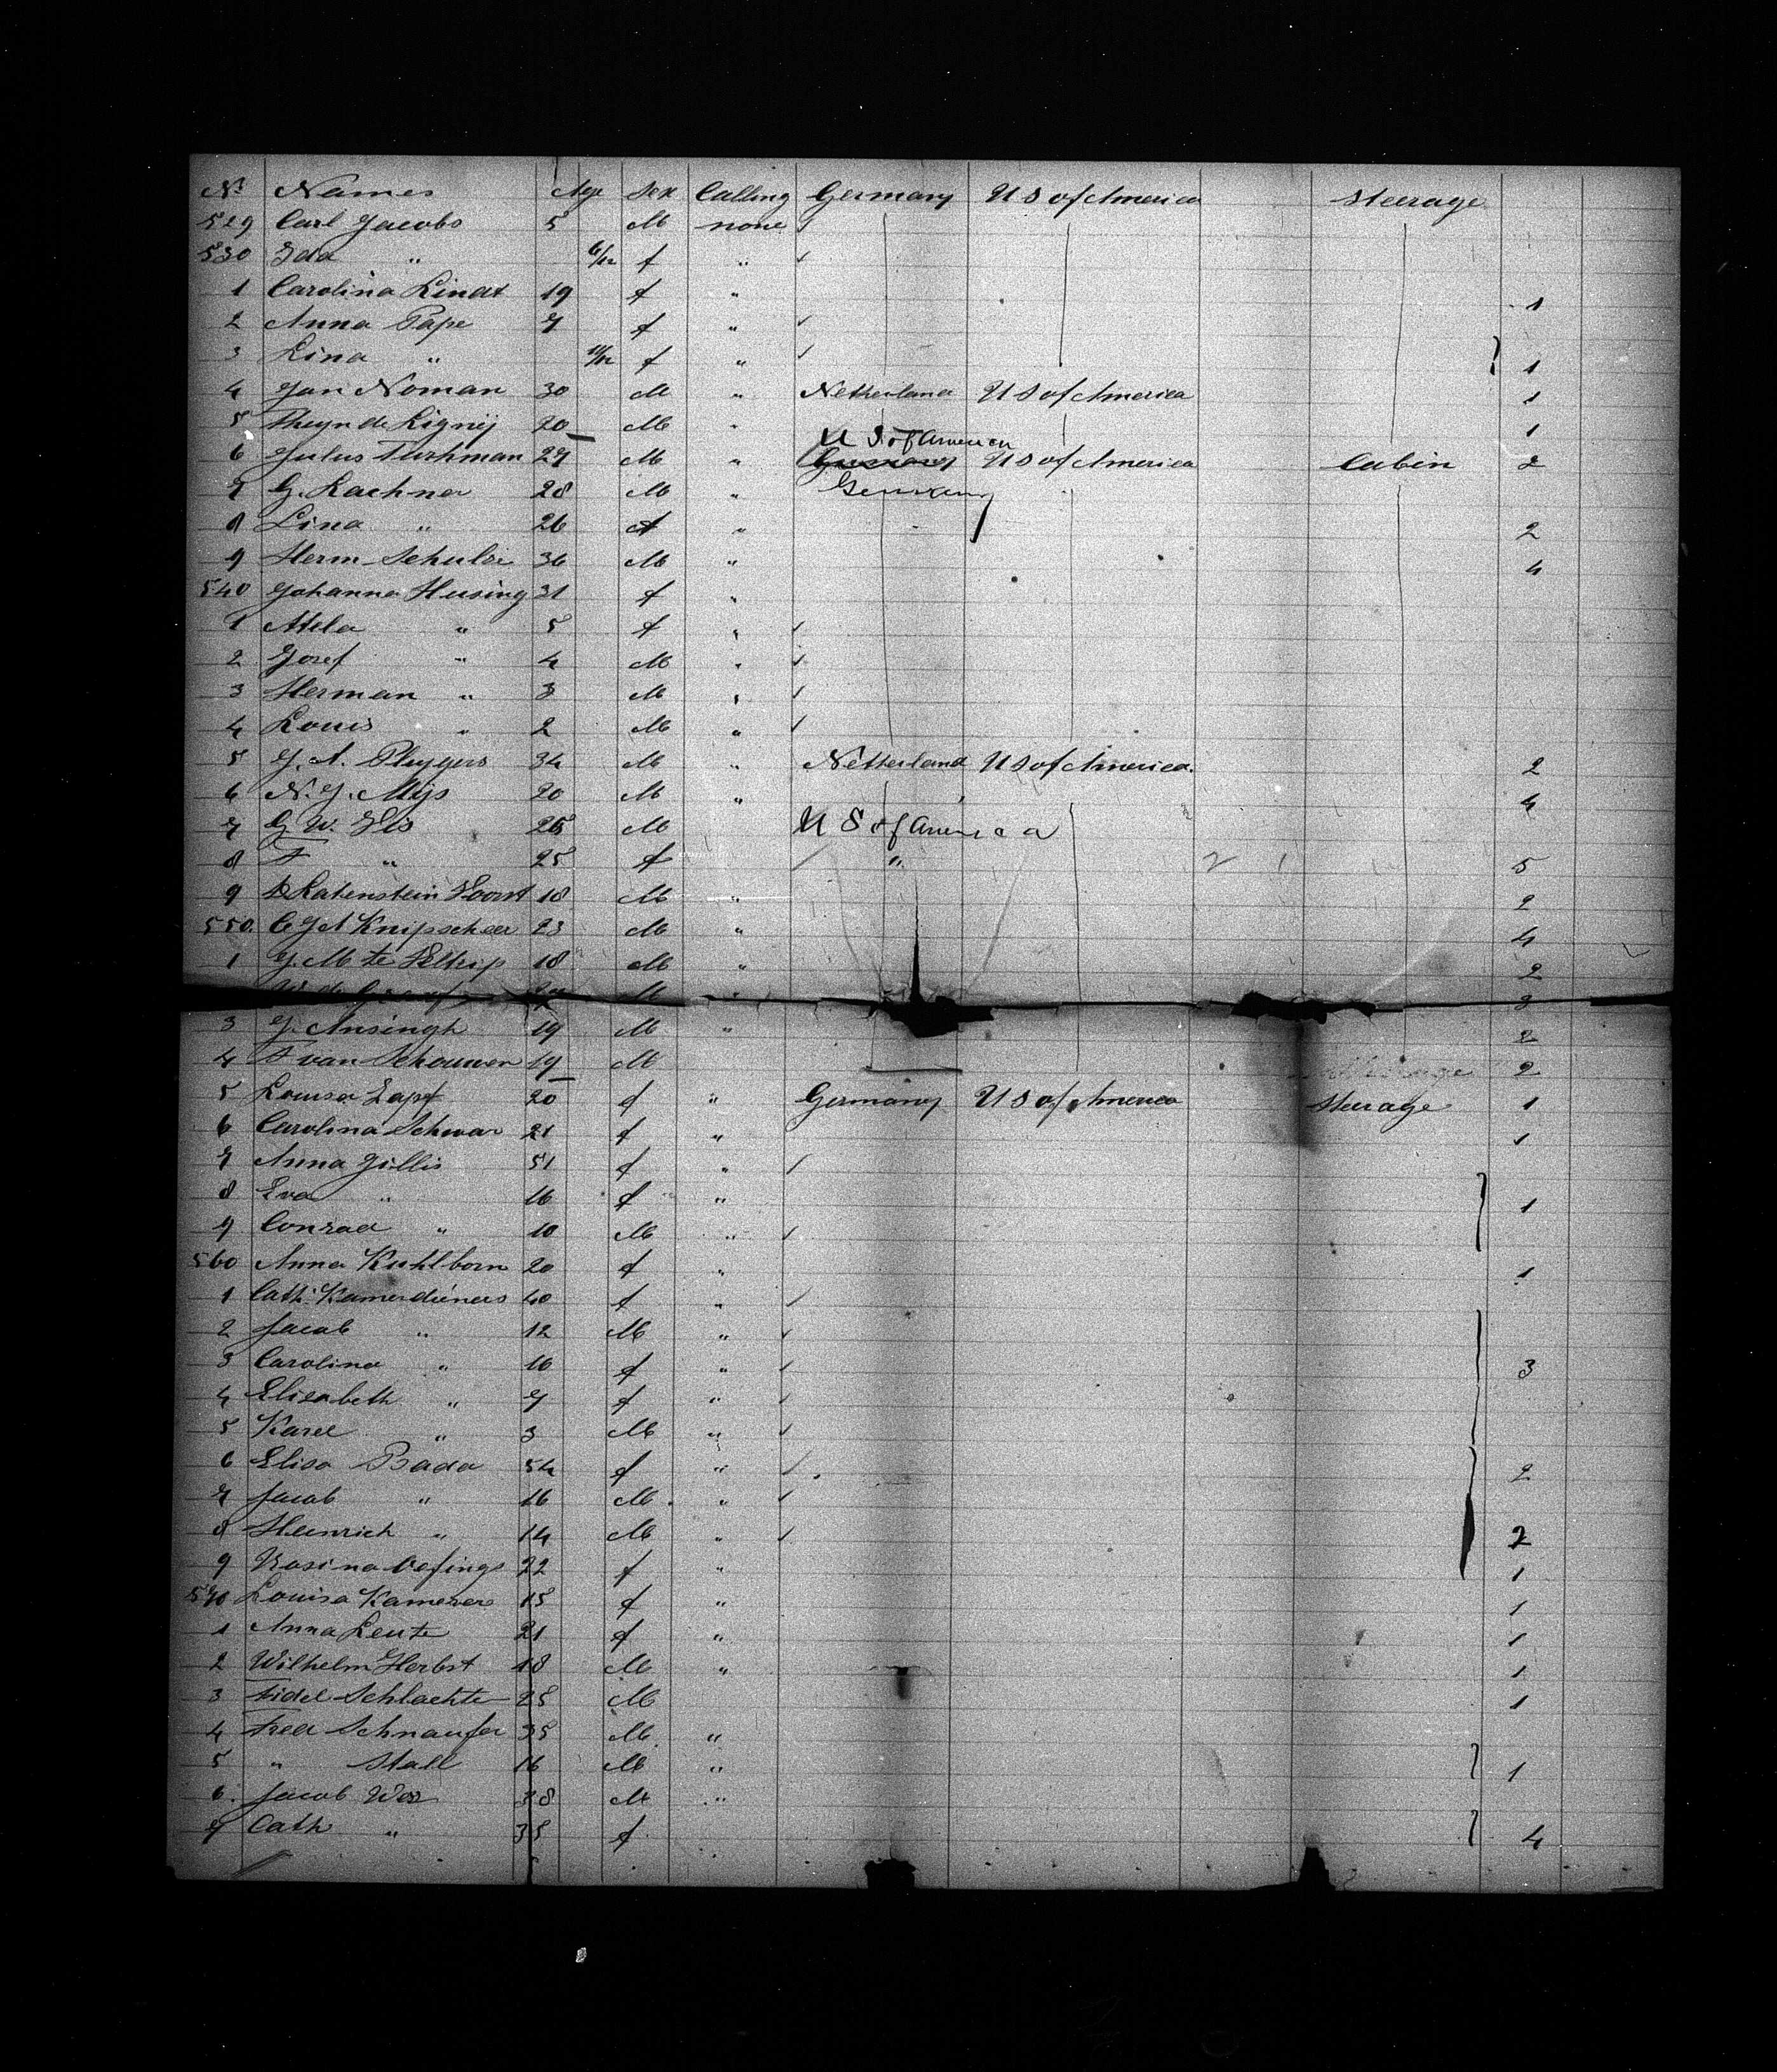 No Names Age Sex Calling Germany U S of America Steerage
529 Carl Jacobs 5 M none
530 Ida " 6/12 f "
1 Carolina Lindt 19 f " 1
2 Anna Pape 7 f "
3 Lina " 11/12 f " 1
4 Jan Noman 30 M " Netherland U S of America 1
5 de Lignij 20 M " 1
U S of America
6 Julus Turhman 29 M " Germany U S of America Cabin 2
7 G. Kachner 28 M " Germany
8 Lina " 26 f " 2
9 Herm Schulze 36 M " 4
540 Johanna Husing 31 f "
1 Atela " 5 f "
2 Josef " 4 M "
3 Herman " 3 M "
4 Louis " 2 M "
5 J. A. Pluygers 34 M " Netherland U S of America. 2
6 N. J. Mijs 20 M " 4
7 G W. 25 M U S of America
8 F " 25 f " 2 1 5
9 Katenstein 18 M " 2
550. C J A Knipscheer 23 M " 4
1 J. M te 18 M " 2
W. de M " 3
3 J. Ansingh 19 M " 2
4 F van Schouwen 19 M 2
5 Louisa Zapf 20 f " Germany U S of America Steerage 1
6 Carolina Schwar 21 f " 1
7 Anna Gillis 51 f "
8 Eva " 16 f " 1
9 Conrad " 10 M "
560 Anna Kuhlborn 20 f " 1
1 Cath. Kamerdieners 40 f "
2 Jacob " 12 M "
3 Carolina " 10 f " 3
4 Elisabeth " 7 f "
5 Karel " 3 M "
6 Elisa Bada 54 f " 2
7 Jacob " 16 M "
8 Heinrich " 14 M " 2
9 Rosina Oefinge 22 f " 1
570 Louisa Kamerer 15 f " 1
1 Anna Leute 21 f " 1
2 Wilhelm Herbst 18 M " 1
3 Fidel Schlachter 25 M 1
4 Fred Schnaufer 35 M "
5 " Stall 16 M " 1
6. Jacob 38 M "
7 Cath " 35 f 4